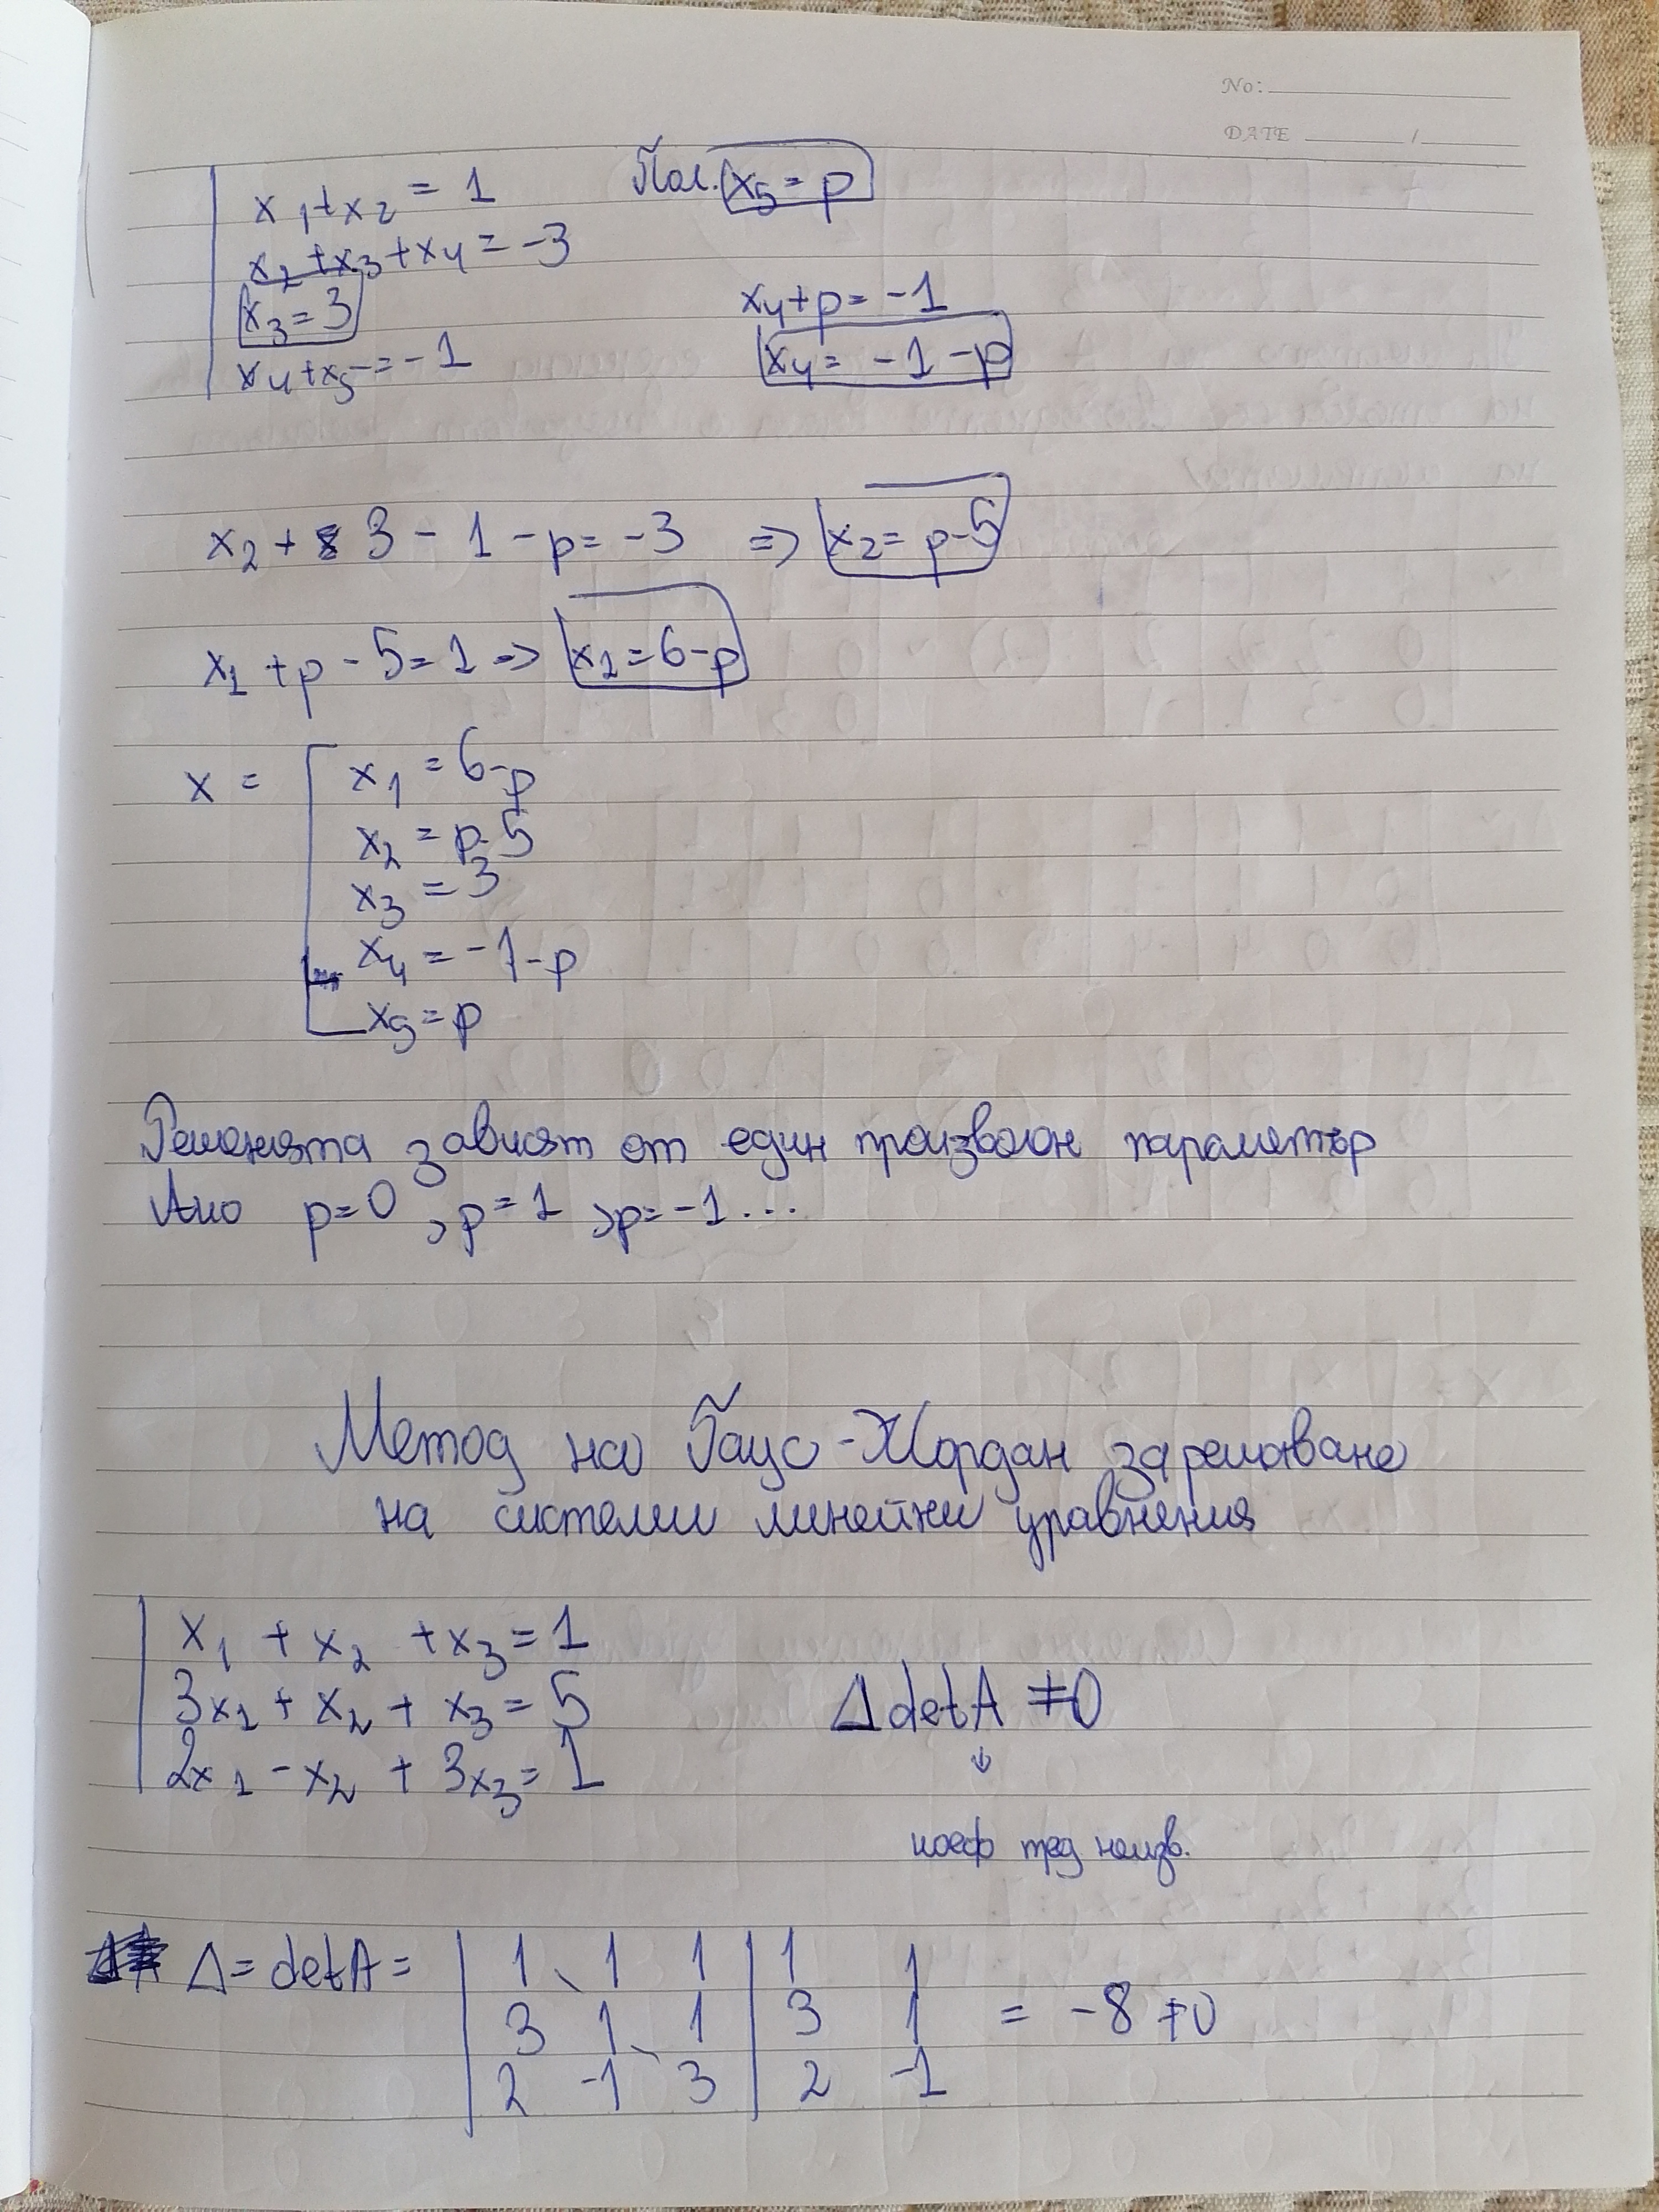 No:
DATE /
x₁+x₂ = 1 Пол. x₅ = p
x₂+x₃+x₄ = -3
x₃ = 3 x₄+p = -1
x₄+x₅ = -1 x₄ = -1-p
x₂ + 3 - 1 - p = -3 => x₂ = p-5
x₁ + p - 5 = 1 => x₁ = 6-p
x = x₁ = 6-p
x₂ = p-5
x₃ = 3
x₄ = -1-p
x₅ = p
Решенията зависят от един произволен параметър
Ако p=0, p=1, p=-1...
Метод на Гаус-Жордан за решаване
на системи линейни уравнения
x₁ + x₂ + x₃ = 1
3x₁ + x₂ + x₃ = 5 Δ detA ≠ 0
2x₁ - x₂ + 3x₃ = 1 ↓
коеф пред неизв.
Δ = detA = | 1 1 1 | 1 1
3 1 1 | 3 1 = -8 ≠ 0
2 -1 3 | 2 -1